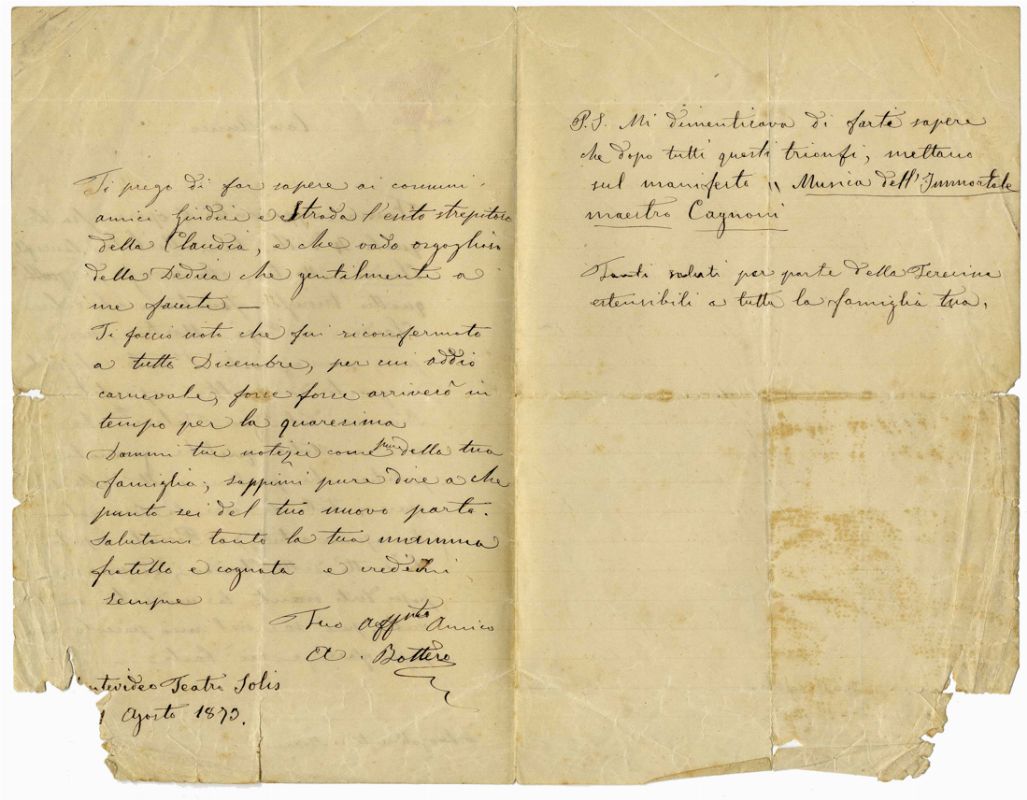 Ti prego di far sapere ai comuni
amici Giudici e Strada l'esito strepitoso
della Claudia, e che vado orgoglioso
della Dedica che gentilmente a
me faceste —
Ti faccio noto che fui riconfermato
a tutto Dicembre, per cui addio
carnevale, forse forse arriverò in
tempo per la quaresima
Dammi tue notizie come pure della tua
famiglia, sappimi pure dire a che
punto sei del tuo nuovo parto.
Salutami tanto la tua mamma
fratello e cognata e credimi
sempre
Tuo Aff.mo Amico
A. Bottero
ntevideo Teatro Solis
1 Agosto 1873.
P.S. Mi dimenticava di farti sapere
che dopo tutti questi trionfi, mettano
sul manifesto " Musica dell'Immortale
maestro Cagnoni
Tanti saluti per parte della Teresina
estensibili a tutta la famiglia tua.